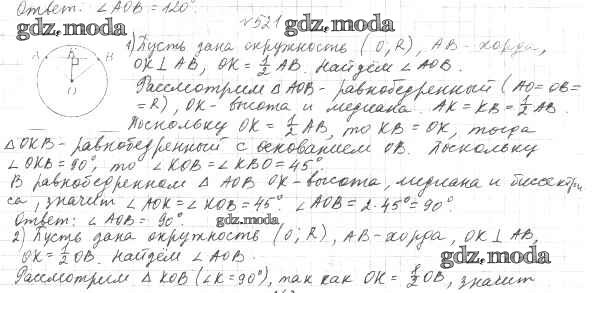 Ответ: ∠AOB = 120°.
№ 521
gdz.moda gdz.moda
1) Пусть дана окружность (O, R), AB - хорда,
OK ⊥ AB, OK = 1/2 AB. Найдём ∠AOB.
A K B
O
Рассмотрим △AOB - равнобедренный (AO = OB =
= R), OK - высота и медиана. AK = KB = 1/2 AB.
Поскольку OK = 1/2 AB, то KB = OK, тогда
△OKB - равнобедренный с основанием OB. Поскольку
∠OKB = 90°, то ∠KOB = ∠KBO = 45°.
В равнобедренном △AOB OK - высота, медиана и биссектри
са, значит ∠AOK = ∠KOB = 45°, ∠AOB = 2·45° = 90°.
Ответ: ∠AOB = 90°. gdz.moda
2) Пусть дана окружность (O; R), AB - хорда, OK ⊥ AB,
OK = 1/2 OB. Найдём ∠AOB. gdz.moda
Рассмотрим △KOB (∠K = 90°), так как OK = 1/2 OB, значит